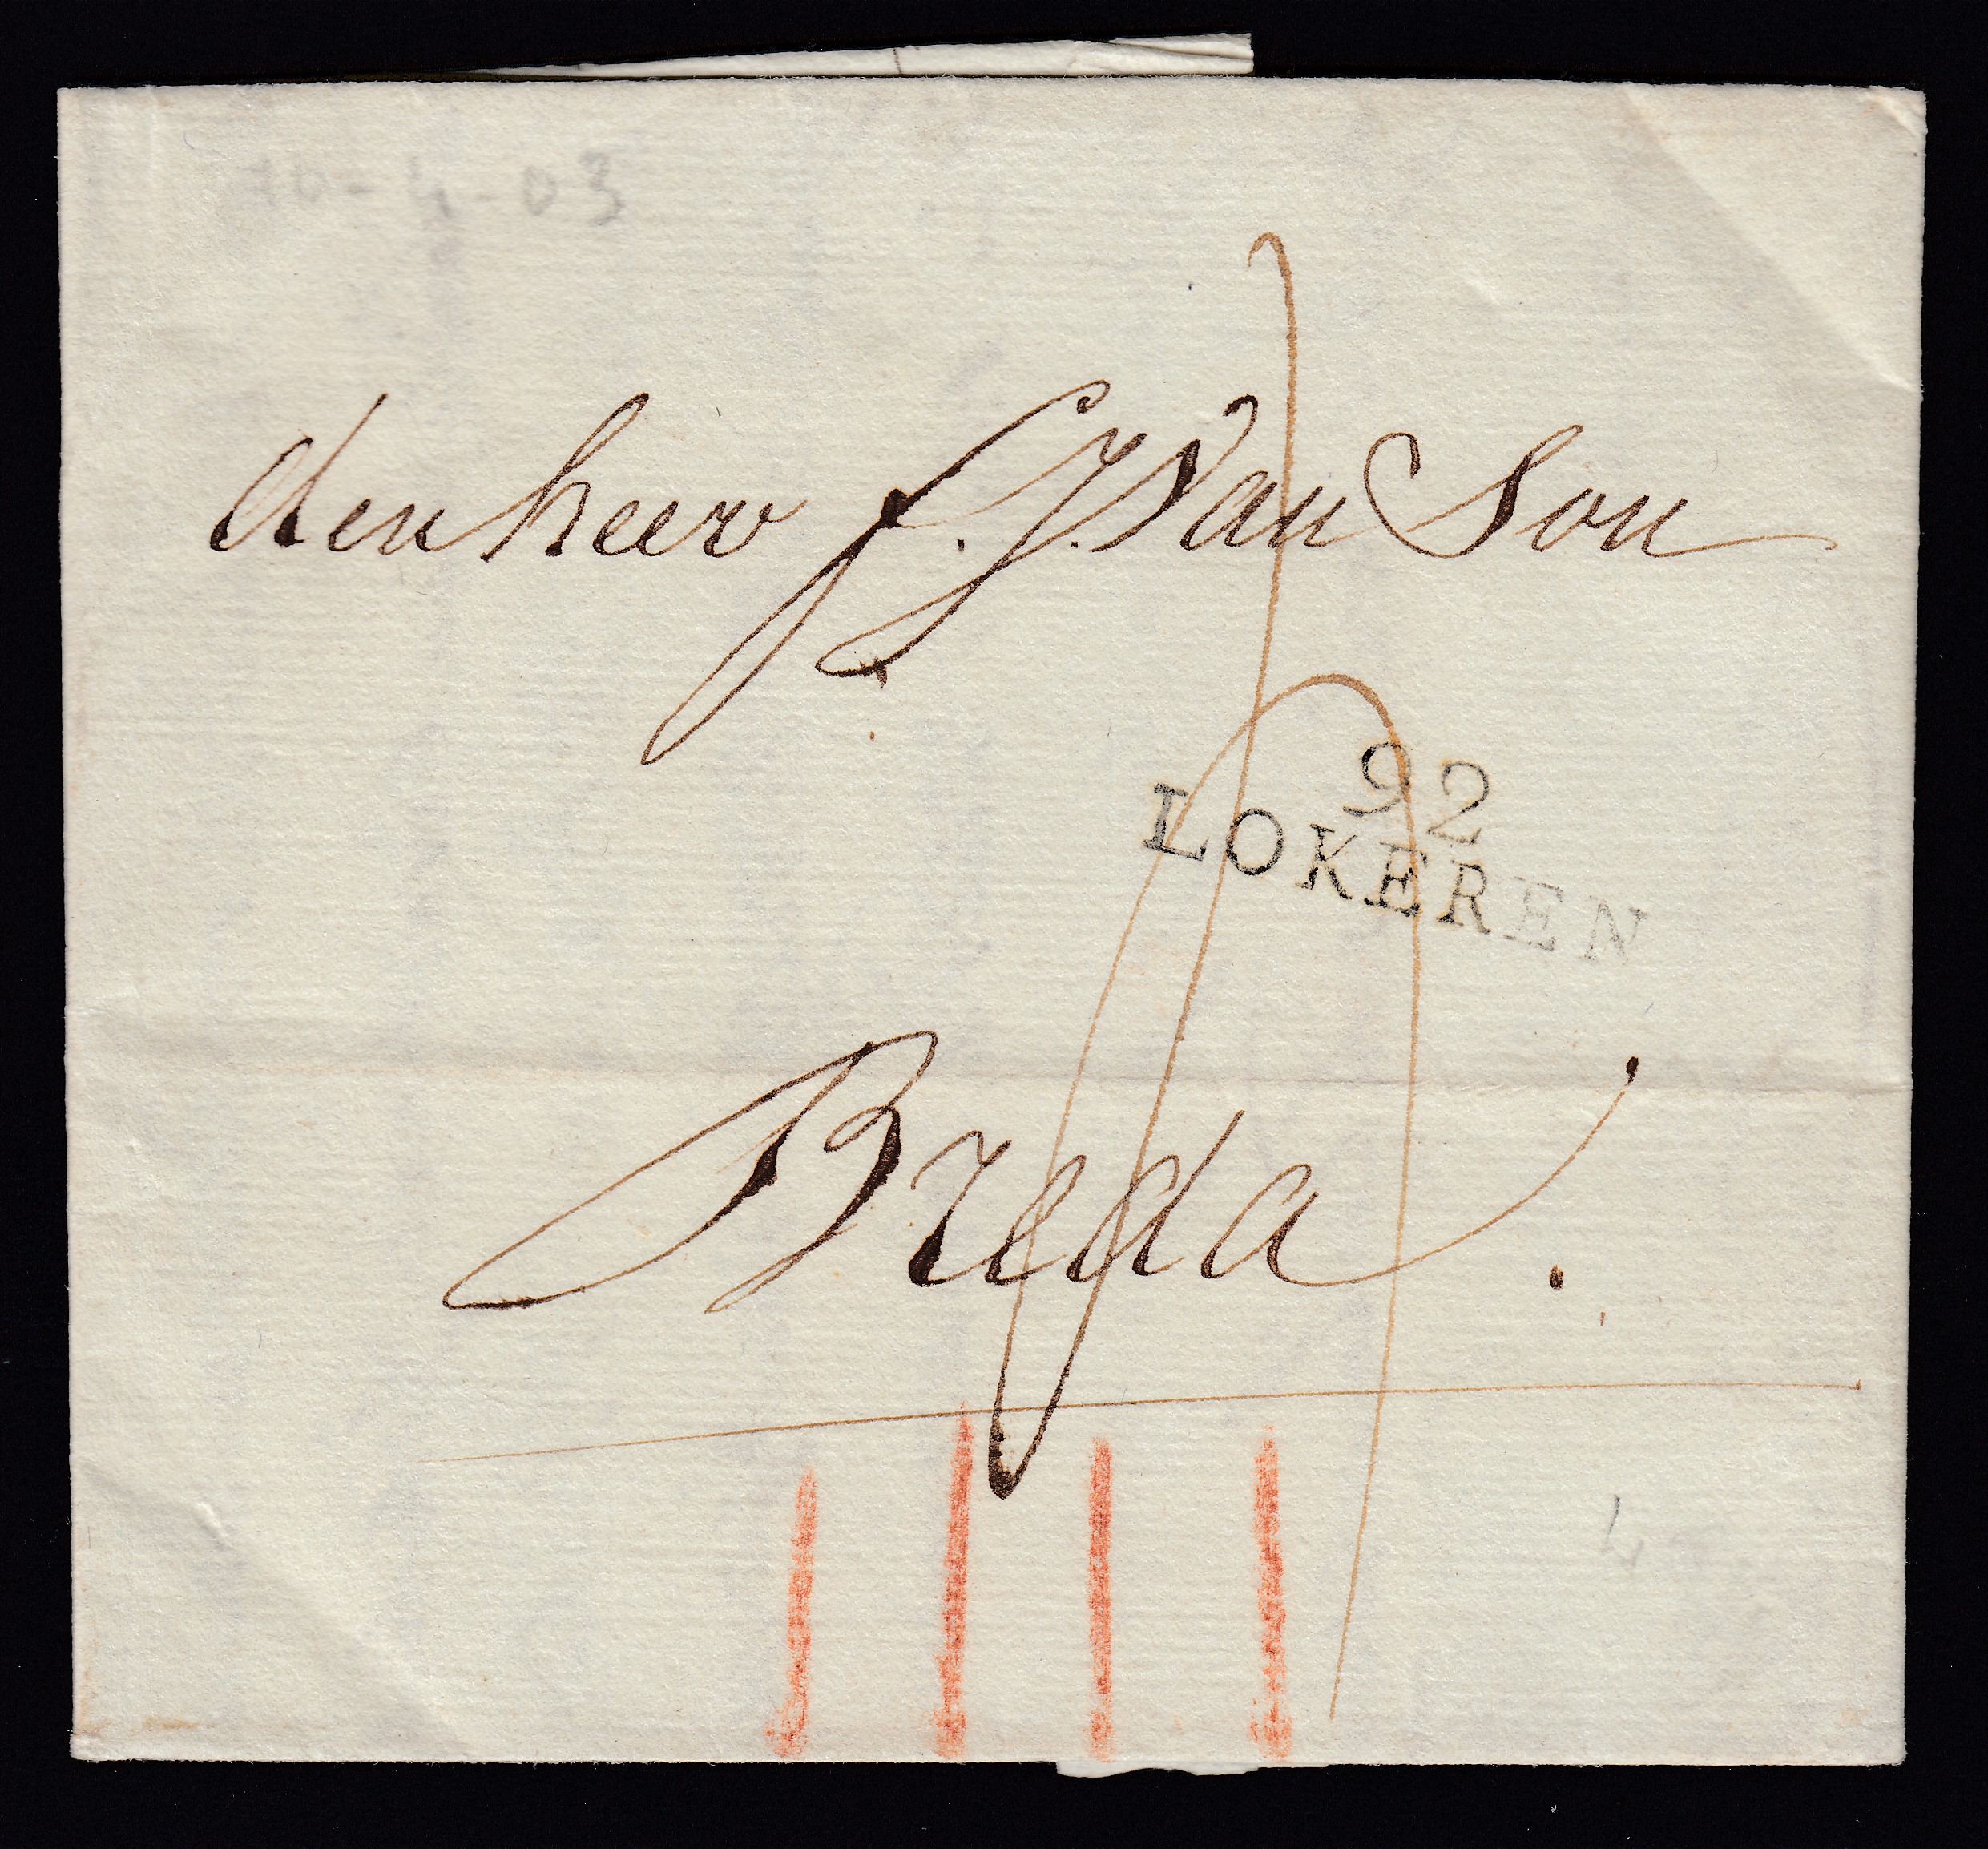 10-4-03
den heer f. J. Van Son
92
LOKEREN
Breda.
4